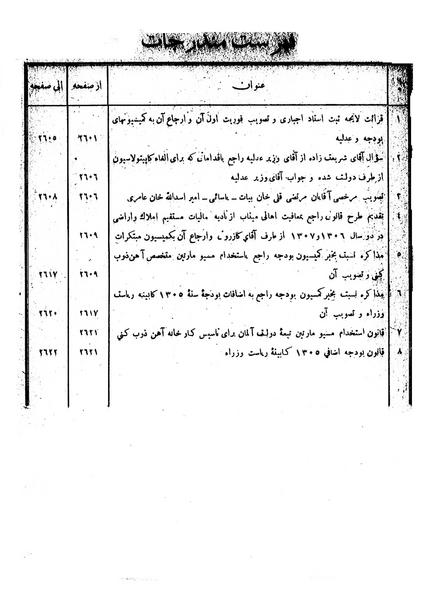 فهرست مندرجات
عنوان از صفحه الی صفحه
۱ قرائت لایحه ثبت اسناد اجباری و تصویب فوریت اول آن و ارجاع آن به کمیسیونهای
بودجه و عدلیه ۲۶۰۱ ۲۶۰۵
۲ سؤال آقای شریعت زاده از آقای وزیر عدلیه راجع باقداماتی که برای الغاء کاپیتولاسیون
از طرف دولت شده و جواب آقای وزیر عدلیه ۲۶۰۶
۳ تصویب مرخصی آقایان مرتضی قلی خان بیات ـ یاسائی ـ امیر اسدالله خان عامری ۲۶۰۶ ۲۶۰۸
۴ تقدیم طرح قانون راجع بمعافیت اهالی میناب از تادیه مالیات مستقیم املاک و اراضی
در دو سال ۱۳۰۶ و ۱۳۰۷ از طرف آقای کازرونی و ارجاع آن بکمیسیون مبتکرات ۲۶۰۹
۵ مذاکره نسبت بخبر کمیسیون بودجه راجع باستخدام مسیو مارتین متخصص آهن ذوب
کنی و تصویب آن ۲۶۰۹ ۲۶۱۷
۶ مذاکره نسبت بخبر کمسیون بودجه راجع به اضافات بودجۀ سنۀ ۱۳۰۵ کابینه ریاست
وزراء و تصویب آن ۲۶۱۷ ۲۶۲۰
۷ قانون استخدام مسیو مارتین تبعۀ دولت آلمان برای تاسیس کارخانه آهن ذوب کنی ۲۶۲۱
۸ قانون بودجه اضافی ۱۳۰۵ کابینۀ ریاست وزراء ۲۶۲۱ ۲۶۲۲